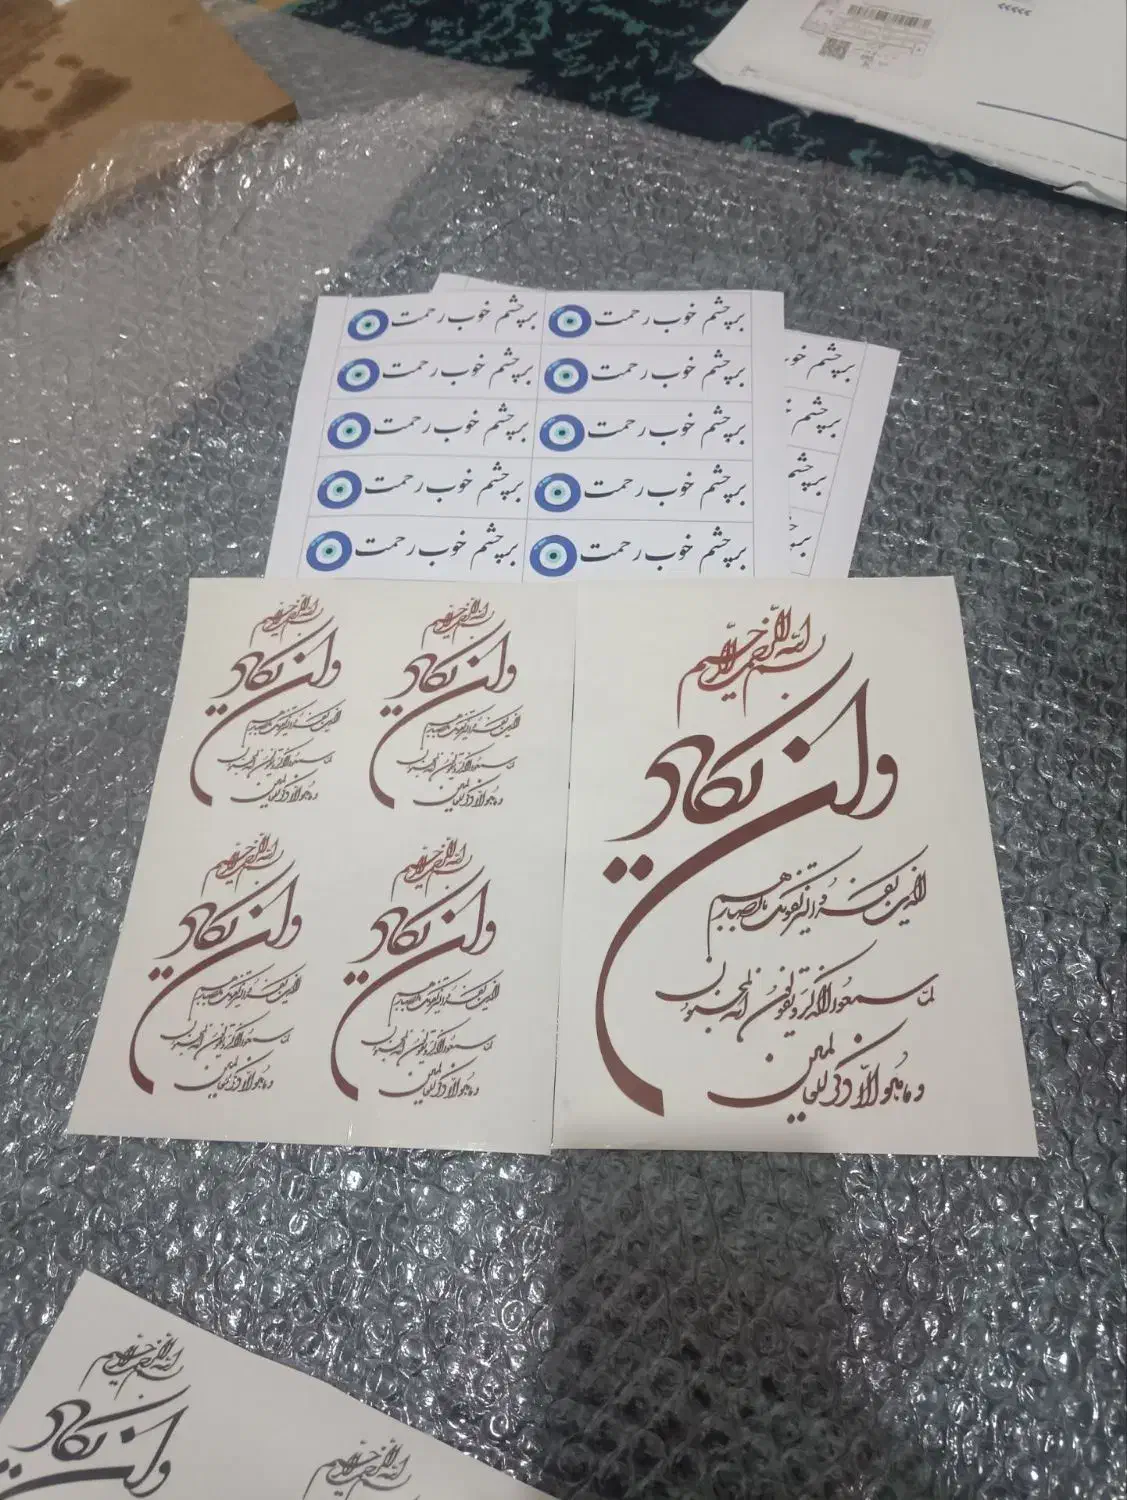 بر چشم خوب رحمت بر چشم خوب رحمت
بر چشم خوب رحمت بر چشم خوب رحمت بر چشم خو
بر چشم خوب رحمت بر چشم خوب رحمت بر چشم
بر چشم خوب رحمت بر چشم خوب رحمت بر چشم
بر چشم خوب رحمت بر چشم خوب رحمت بر
بسم الله الرحمن الرحیم
وان یکاد
الذین کفروا لیزلقونک بابصارهم
لما سمعوا الذکر و یقولون انه لمجنون
و ما هو الا ذکر للعالمین
بسم الله الرحمن الرحیم
وان یکاد
الذین کفروا لیزلقونک بابصارهم
لما سمعوا الذکر و یقولون انه لمجنون
و ما هو الا ذکر للعالمین
بسم الله الرحمن الرحیم
وان یکاد
الذین کفروا لیزلقونک بابصارهم
لما سمعوا الذکر و یقولون انه لمجنون
و ما هو الا ذکر للعالمین
بسم الله الرحمن الرحیم
وان یکاد
الذین کفروا لیزلقونک بابصارهم
لما سمعوا الذکر و یقولون انه لمجنون
و ما هو الا ذکر للعالمین
بسم الله الرحمن الرحیم
وان یکاد
الذین کفروا لیزلقونک بابصارهم
لما سمعوا الذکر و یقولون انه لمجنون
و ما هو الا ذکر للعالمین
بسم الله الرحمن الرحیم
وان یکاد
بسم الله الرحمن الرحیم